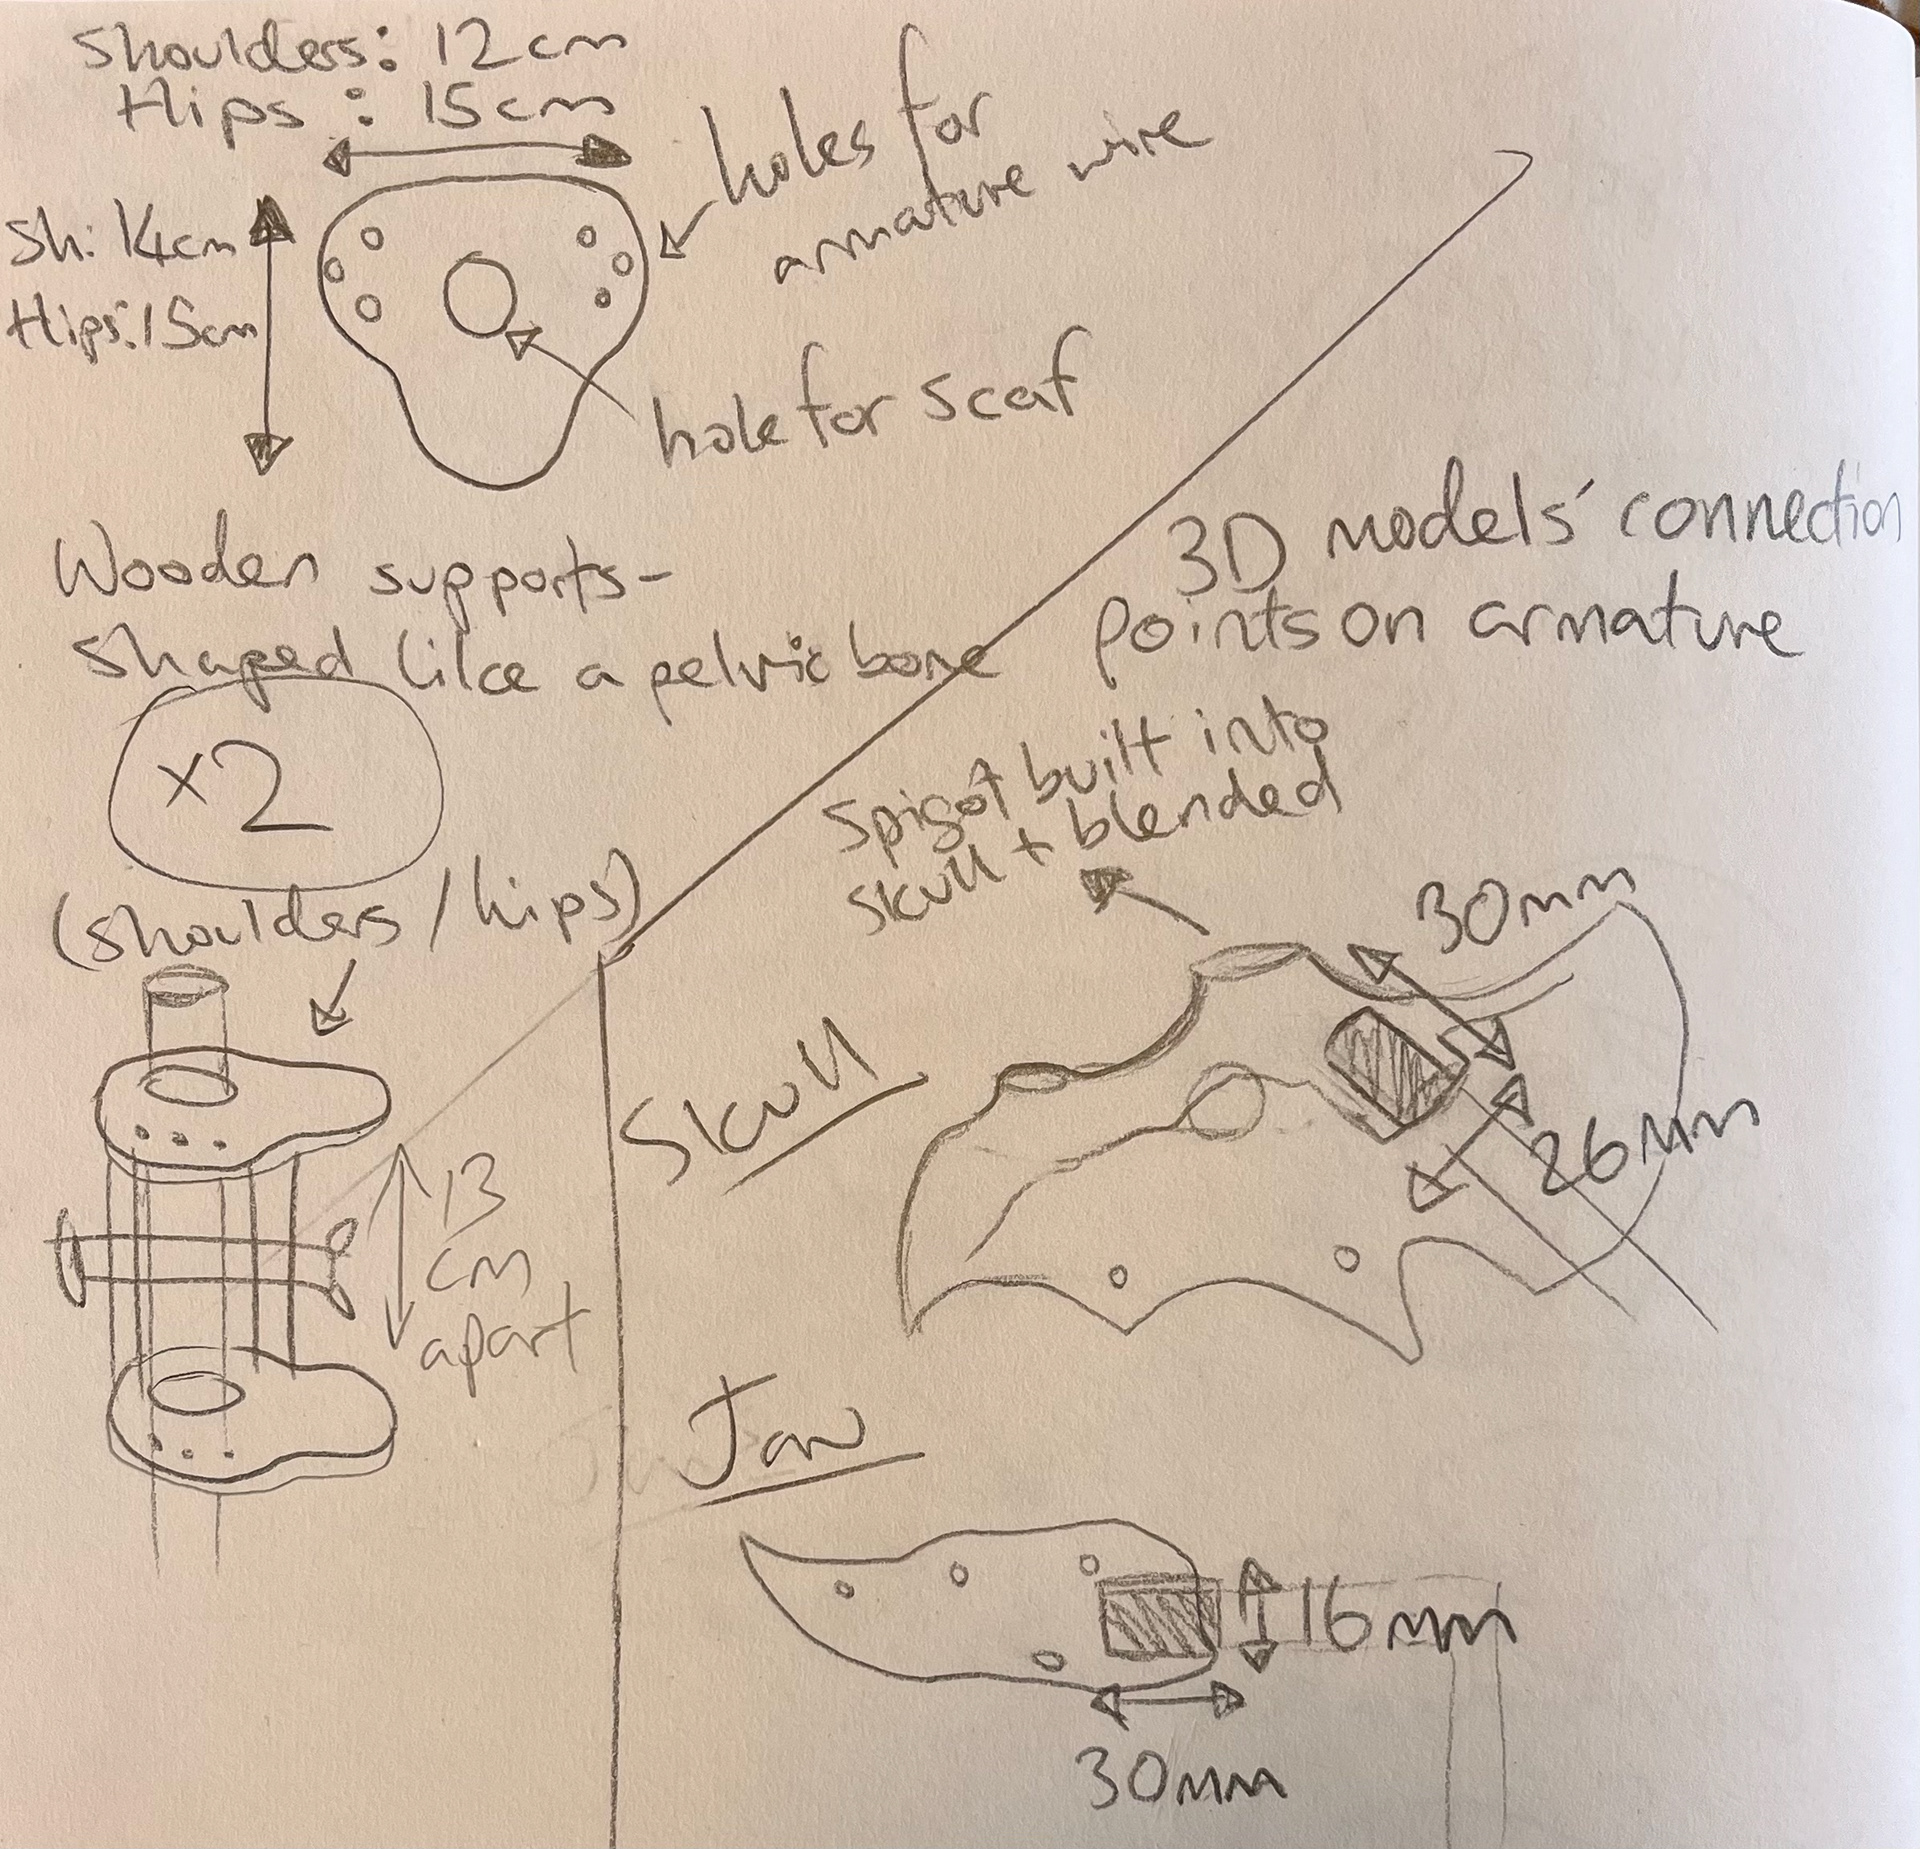 Shoulders: 12cm
Hips : 15cm
holes for
armature wire
Sh: 14cm
Hips: 15cm
hole for scaf
Wooden supports-
shaped like a pelvic bone
x2
(shoulders/hips)
13
cm
apart
3D models' connection
points on armature
Spigot built into
skull + blended
30mm
Skull
26mm
Jaw
16mm
30mm